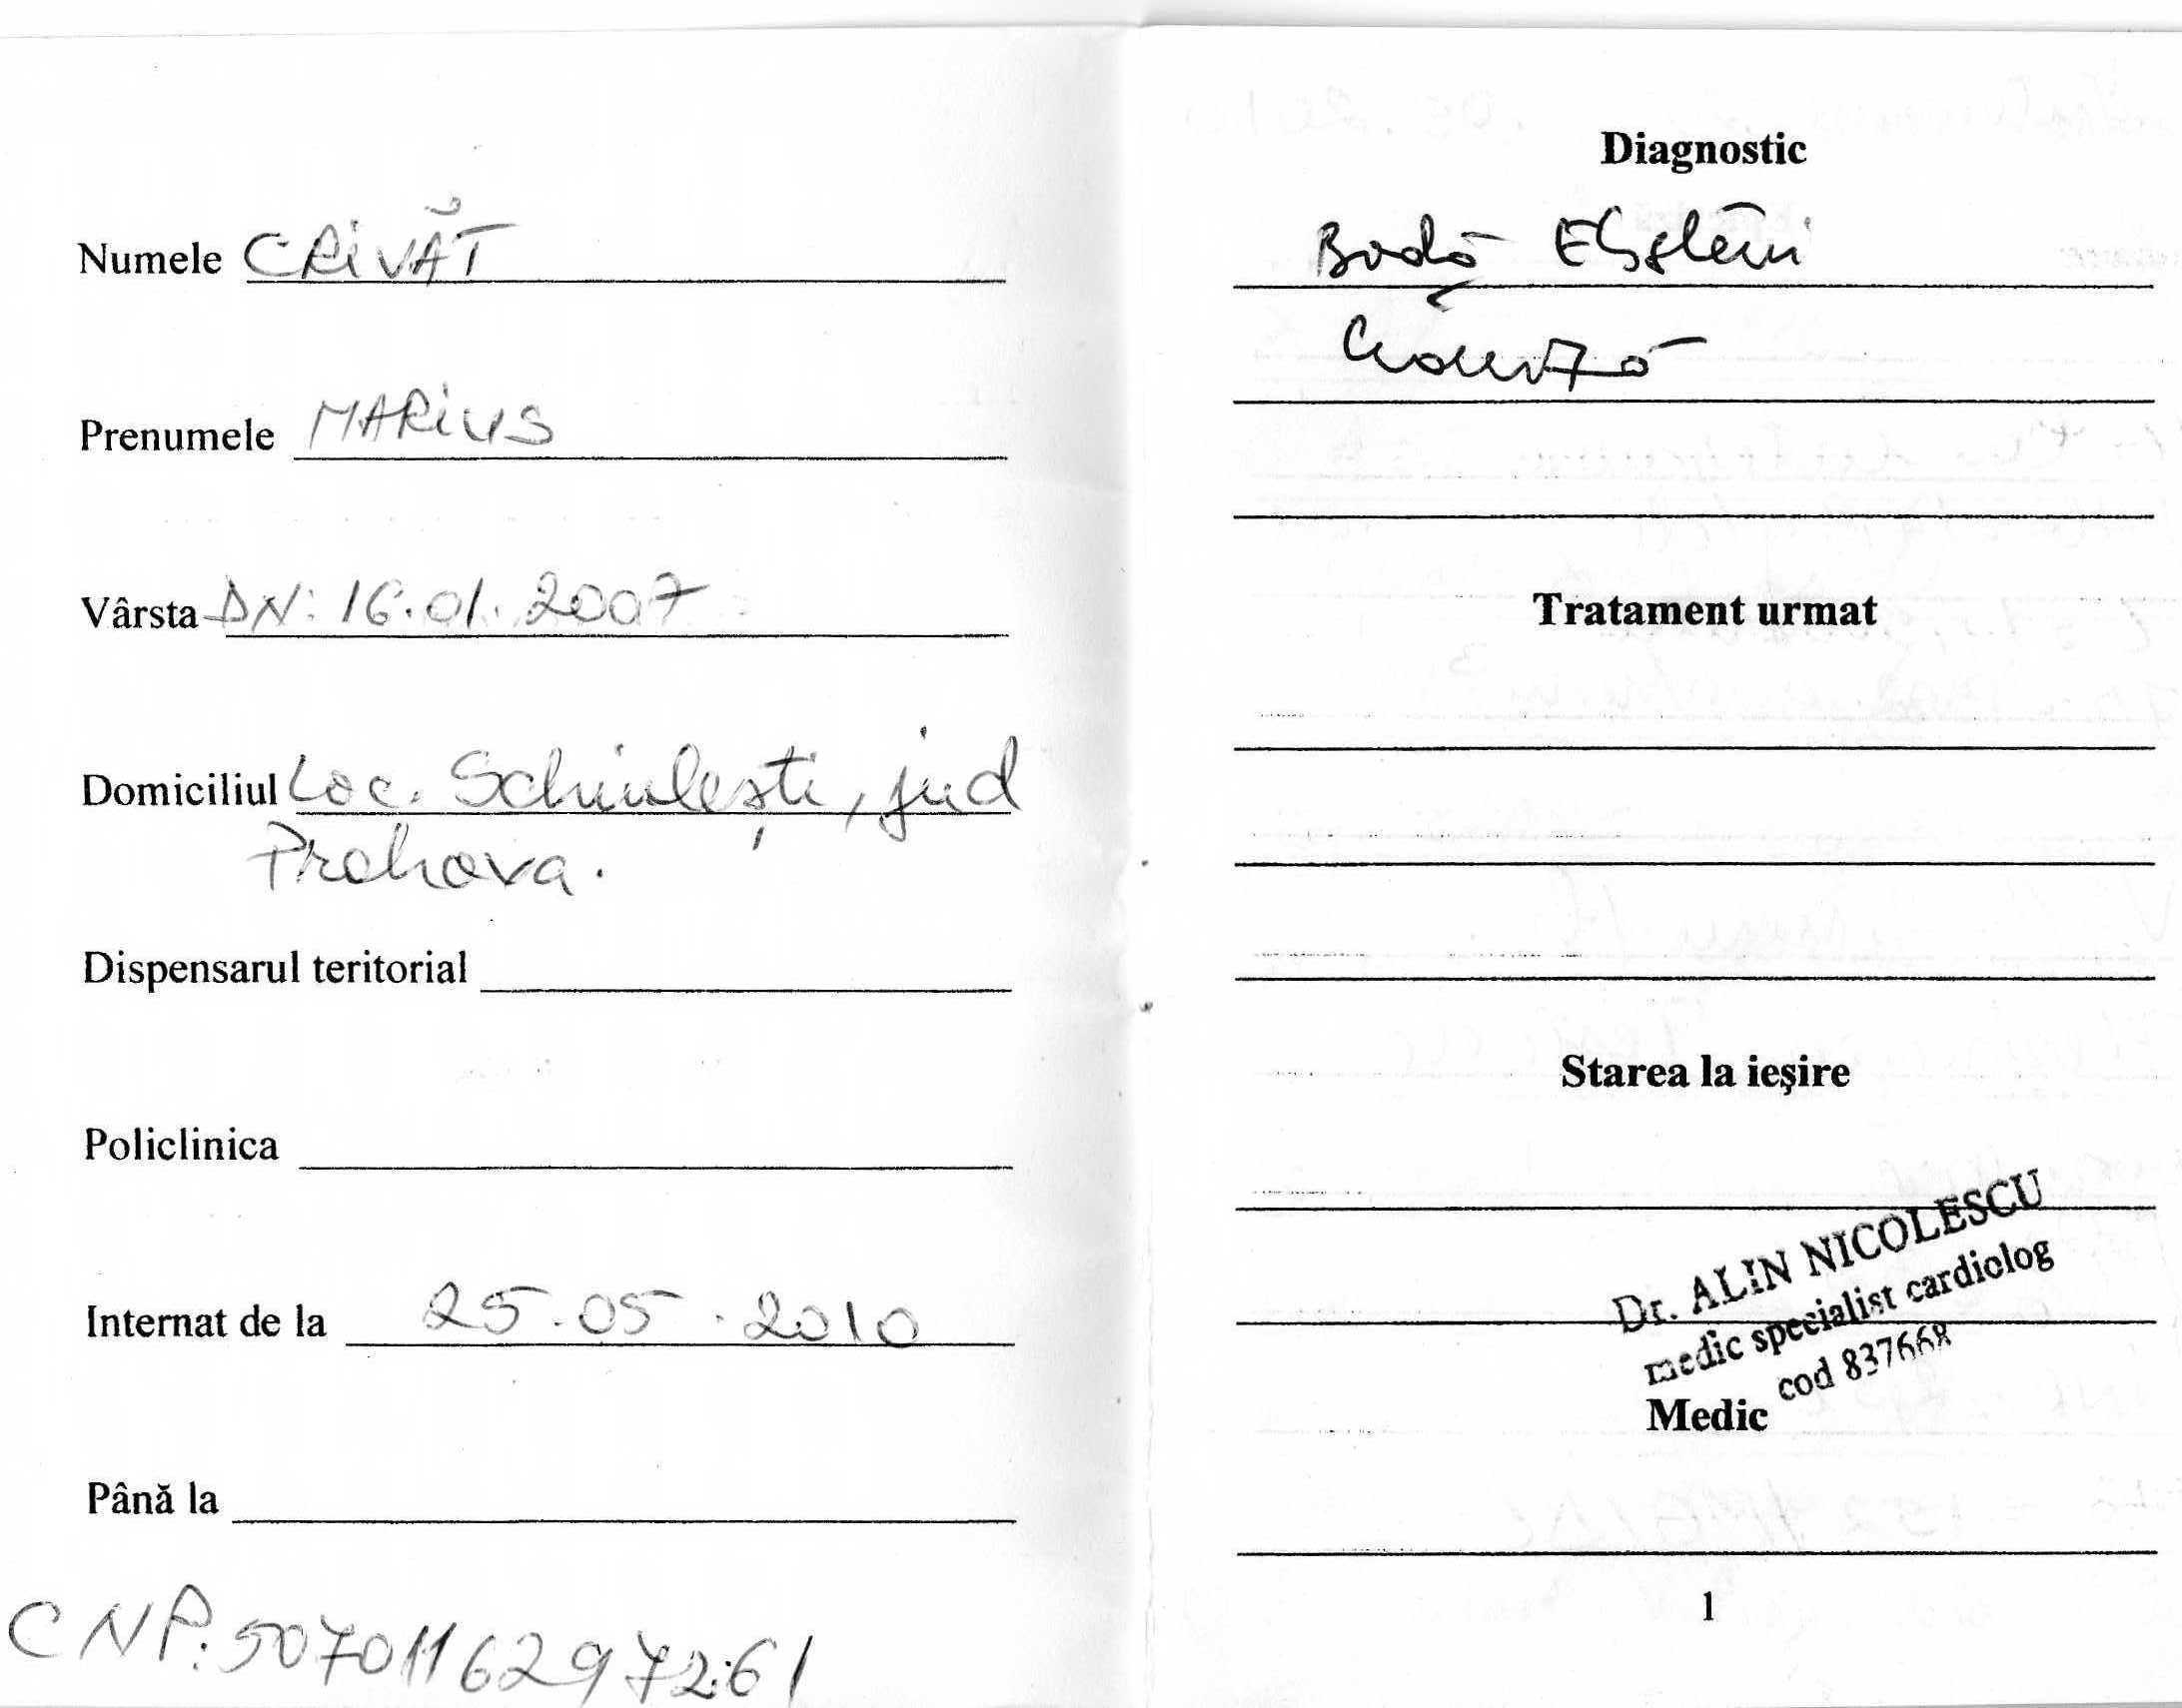 Numele CRIVĂT
Prenumele MARIUS
Vârsta DN: 16.01.2007
Domiciliul Loc. Schiulești, jud
Prahova.
Dispensarul teritorial
Policlinica
Internat de la 25.05.2010
Până la
CNP:
Diagnostic
Boală Ebstein
Tratament urmat
Starea la ieşire
Dr. ALIN NICOLESCU
medic specialist cardiolog
cod 837668
Medic
1